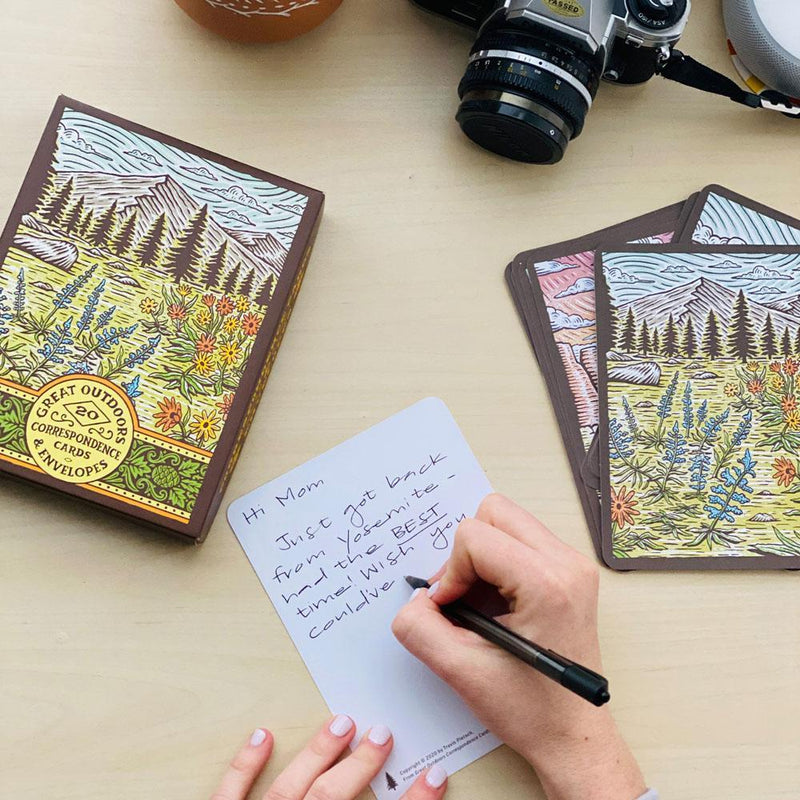 PASSED
ASA/ISO
GREAT OUTDOORS
20
CORRESPONDENCE
CARDS
& ENVELOPES
Hi Mom
Just got back
from Yosemite -
had the BEST
time! Wish you
could've
Copyright © 2020 by Travis Pietsch.
From Great Outdoors Correspondence Cards.